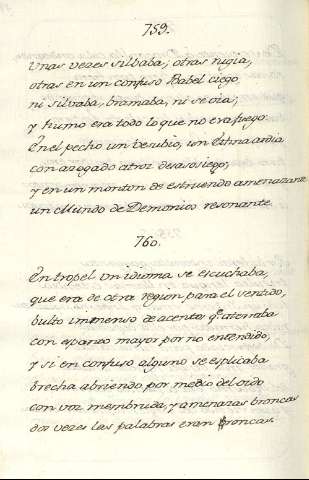 759.
Unas vezes silbaba, otras rugia,
otras en un confuso Babel ciego
ni silvaba, bramaba, ni se oia;
y humo era todo lo que no era fuego.
En el pecho un Vesubio, un Ethna ardia
con azogado atroz desasosiego;
y en un monton de estruendo amenazante
un Mundo de Demonios resonante.
760.
En tropel un idioma se escuchaba,
que era de otra region para el sentido,
bulto immenso de acentos q.e atronaba
con espanto mayor por no entendido,
y si en confuso alguno se esplicaba
brecha abriendo por medio del oido
con voz membruda, y amenazas broncas
dos vezes las palabras eran broncas.